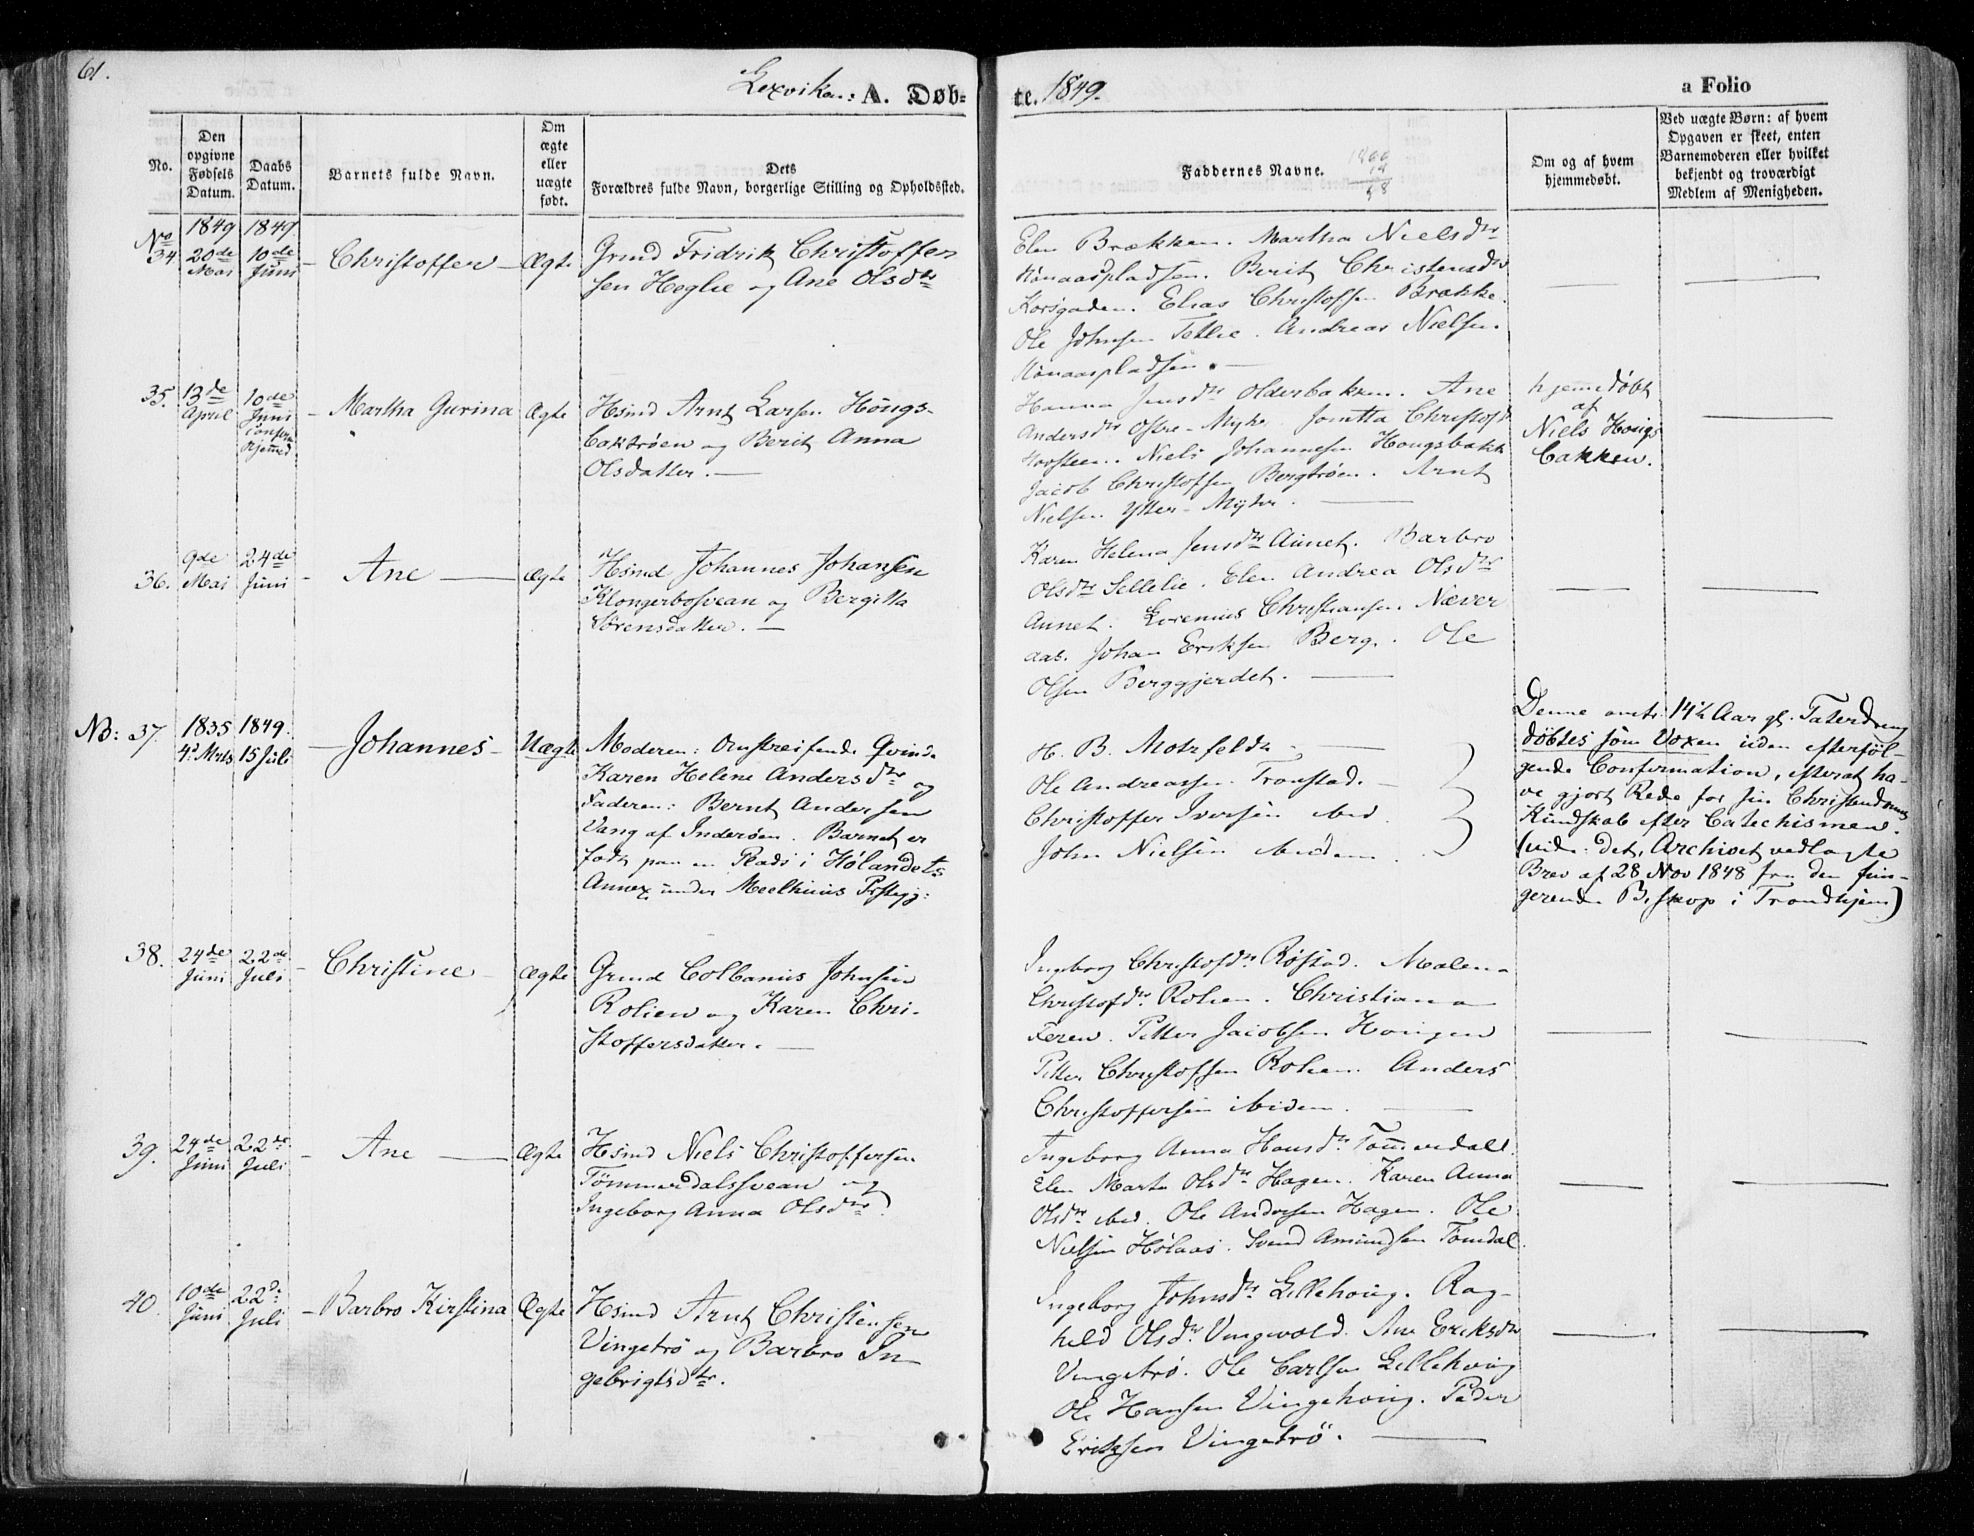 61.
Lexviken: A. Døb-
te. 1849.
a Folio
No.
Den opgivne Fødsels Datum.
Daabs Datum.
Barnets fulde Navn.
Om ægte eller uægte født.
Dets
Forældres fulde Navn, borgerlige Stilling og Opholdssted.
Faddernes Navne.
Om og af hvem hjemmedøbt.
Ved uægte Børn: af hvem
Opgaven er skeet, enten
Barnemoderen eller hvilket
bekjendt og troværdigt
Medlem af Menigheden.
No 34
1849 20de Mai
1849 10de Juni
Christoffer
Ægte
Grmd Fridrik Christoffer
sen Heglie og Ane Olsdtr
Elen Brækken. Martha Nielsdtr
Berit Christensdtr
Elias Christofsen Brække.
Ole Johnsen Andreas Nielsen
35.
13de April
10de Juni
Martha Gurina
Ægte
Hsmd Arnt Larsen Høugs-
baktrøen og Berit Anna
Olsdatter.
Hanna Jensdtr Olderbakken. Ane
Andersdtr Østre-Myhr. Christofd
Niels Johannesen Hougsbakk
Jacob Christofsen Bergtrøen. Arnt
Nielsen Ytter-Myhr.
hjemedøbt
af
Niels Hougs
bakken.
36.
9de Mai
24de Juni
Ane
Ægte
Hsmd Johannes Johansen
Klongerbosvean og Bergitta
Sørensdatter.
Karen Helena Jensdtr Aunet. Barbro
Olsdtr Sellelie. Elen Andrea Olsdtr
Aunet. Lorenius Christiansen Næver
aas. Johan Eriksen Berg. Ole
Olsen Berggjerdet.
NB: 37.
1835 4de Mrts
1849. 15 Juli
Johannes
Uægte
Moderen: omstreifende Qvinde
Karen Helene Andersdtr og
Faderen: Bernt Andersen
Vang af Inderøen. Barnet er
født paa en Plads i Hølandets
Annex under Meelhuus Prstegj:
H. B. Motzfeldt
Ole Andreassen Tronstad.
Christoffer Iversen ibid
John Nielsen ibidem
Denne omtr: 14½ Aar gl. Taterdreng
døbtes som Voxen uden efterføl-
gende Confirmation, efterat ha-
ve gjort Rede for sin Christendoms
Kundskab efter Catechismen.
(vide: det, Archivet vedlagte
Brev af 28 Nov 1848 fra den fun-
gerende Biskop i Trondhjem)
38.
24de Juni
22de Juli
Christine
Ægte
Grmd Colbanus Johnsen
Rolien og Karen Chri-
stoffersdatter.
Ingeborg Christofdtr Røstad. Malena
Christofdtr Rolien. Christiana
Feren. Petter Jacobsen Hougen
Petter Christofsen Rolien. Anders
Christoffersen ibidem.
39.
24de Juni
22de Juli
Ane
Ægte
Hsmd Niels Christoffersen
Tømmerdalssvean og
Ingeborg Anna Olsdtr.
Ingeborg Anna Hansdtr Tommerdall.
Elen Marta Olsdtr Hagen. Karen Anna
Olsdtr ibid. Ole Andersen Hagen. Ole
Nielsen Hølaas. Svend Amundsen Tømdal.
40.
10de Juni
22de Juli
Barbro Kirstina
Ægte
Hsmd Arnt Christensen
Vingetrø og Barbro In-
gebrigtsdtr.
Ingeborg Johnsdtr Lillehoug. Rag-
hild Olsdtr Vingvold. Ane Eriksdtr
Vingetrø. Ole Carlsen Lillehoug
Ole Hansen Vingehoug. Peder
Eriksen Vingetrø.